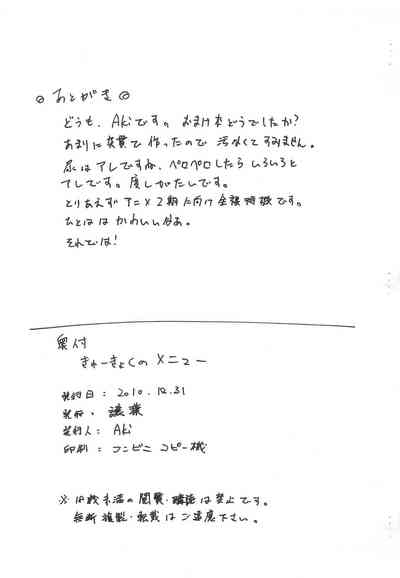 ◎ あとがき ◎
どうも、Akiです。おまけ本どうでしたか?
あまりに突貫で作ったので 汚なくてすみません。
尿はアレですね、ペロペロしたらいろいろと
アレです。度しがたしです。
とりあえずアニメ2期に向け全裸待機です。
ひとははかわいいなあ。
それでは!
奥付
きゅーきょくのメニュー
発行日:2010.12.31
発行:
発行人:Aki
印刷:コンビニ コピー機
※18歳未満の閲覧・購読は禁止です。
無断複製・転載はご遠慮下さい。